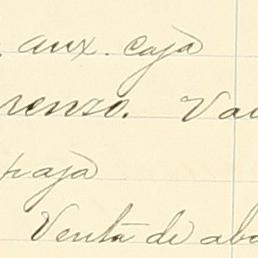 aux. caja
renzo. Va
paja
Venta de abo